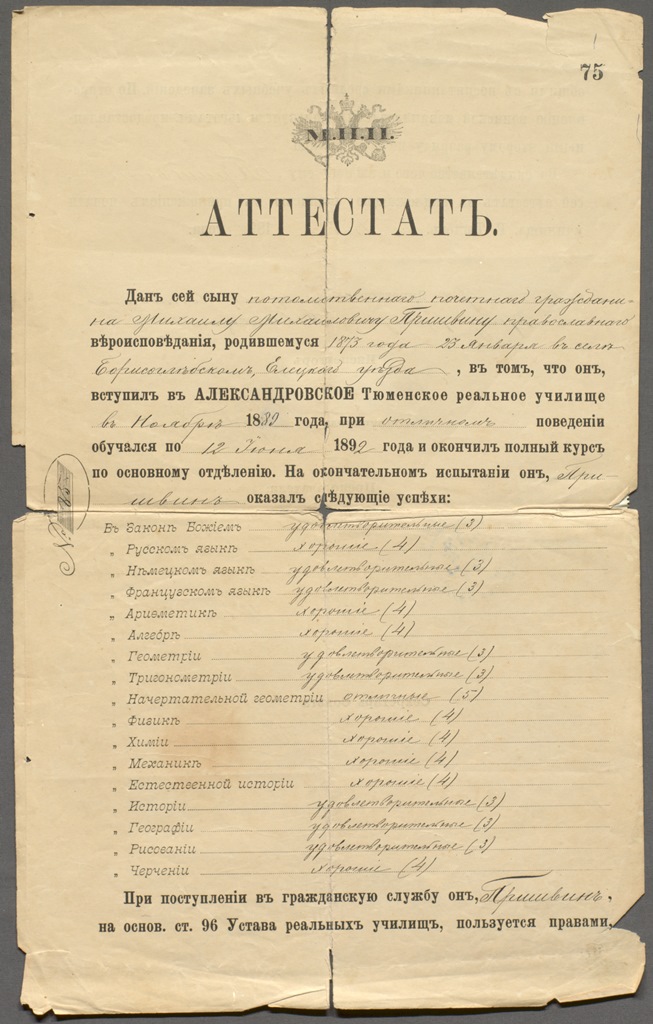 75
М.Н.П.
АТТЕСТАТЪ.
Данъ сей сыну потомственнаго почетнаго граждани-
на Михаилу Михайловичу Пришвину православнаго
вѣроисповѣданія, родившемуся 1873 года 23 Января въ селѣ
Борисоглѣбскомъ, Елецкаго уѣзда, въ томъ, что онъ,
вступилъ въ АЛЕКСАНДРОВСКОЕ Тюменское реальное училище
въ Ноябрѣ 1889 года, при отличномъ поведеніи
обучался по 12 Іюня 1892 года и окончилъ полный курсъ
по основному отдѣленію. На окончательномъ испытаніи онъ, При-
швинъ оказалъ слѣдующіе успѣхи:
№ 85
Въ Законѣ Божіемъ удовлетворительные (3)
„ Русскомъ языкѣ хорошіе (4)
„ Нѣмецкомъ языкѣ удовлетворительные (3)
„ Французскомъ языкѣ удовлетворительные (3)
„ Ариѳметикѣ хорошіе (4)
„ Алгебрѣ хорошіе (4)
„ Геометріи удовлетворительные (3)
„ Тригонометріи удовлетворительные (3)
„ Начертательной геометріи отличные (5)
„ Физикѣ хорошіе (4)
„ Химіи хорошіе (4)
„ Механикѣ хорошіе (4)
„ Естественной исторіи хорошіе (4)
„ Исторіи удовлетворительные (3)
„ Географіи удовлетворительные (3)
„ Рисованіи удовлетворительные (3)
„ Черченіи хорошіе (4)
При поступленіи въ гражданскую службу онъ, Пришвинъ,
на основ. ст. 96 Устава реальныхъ училищъ, пользуется правами,